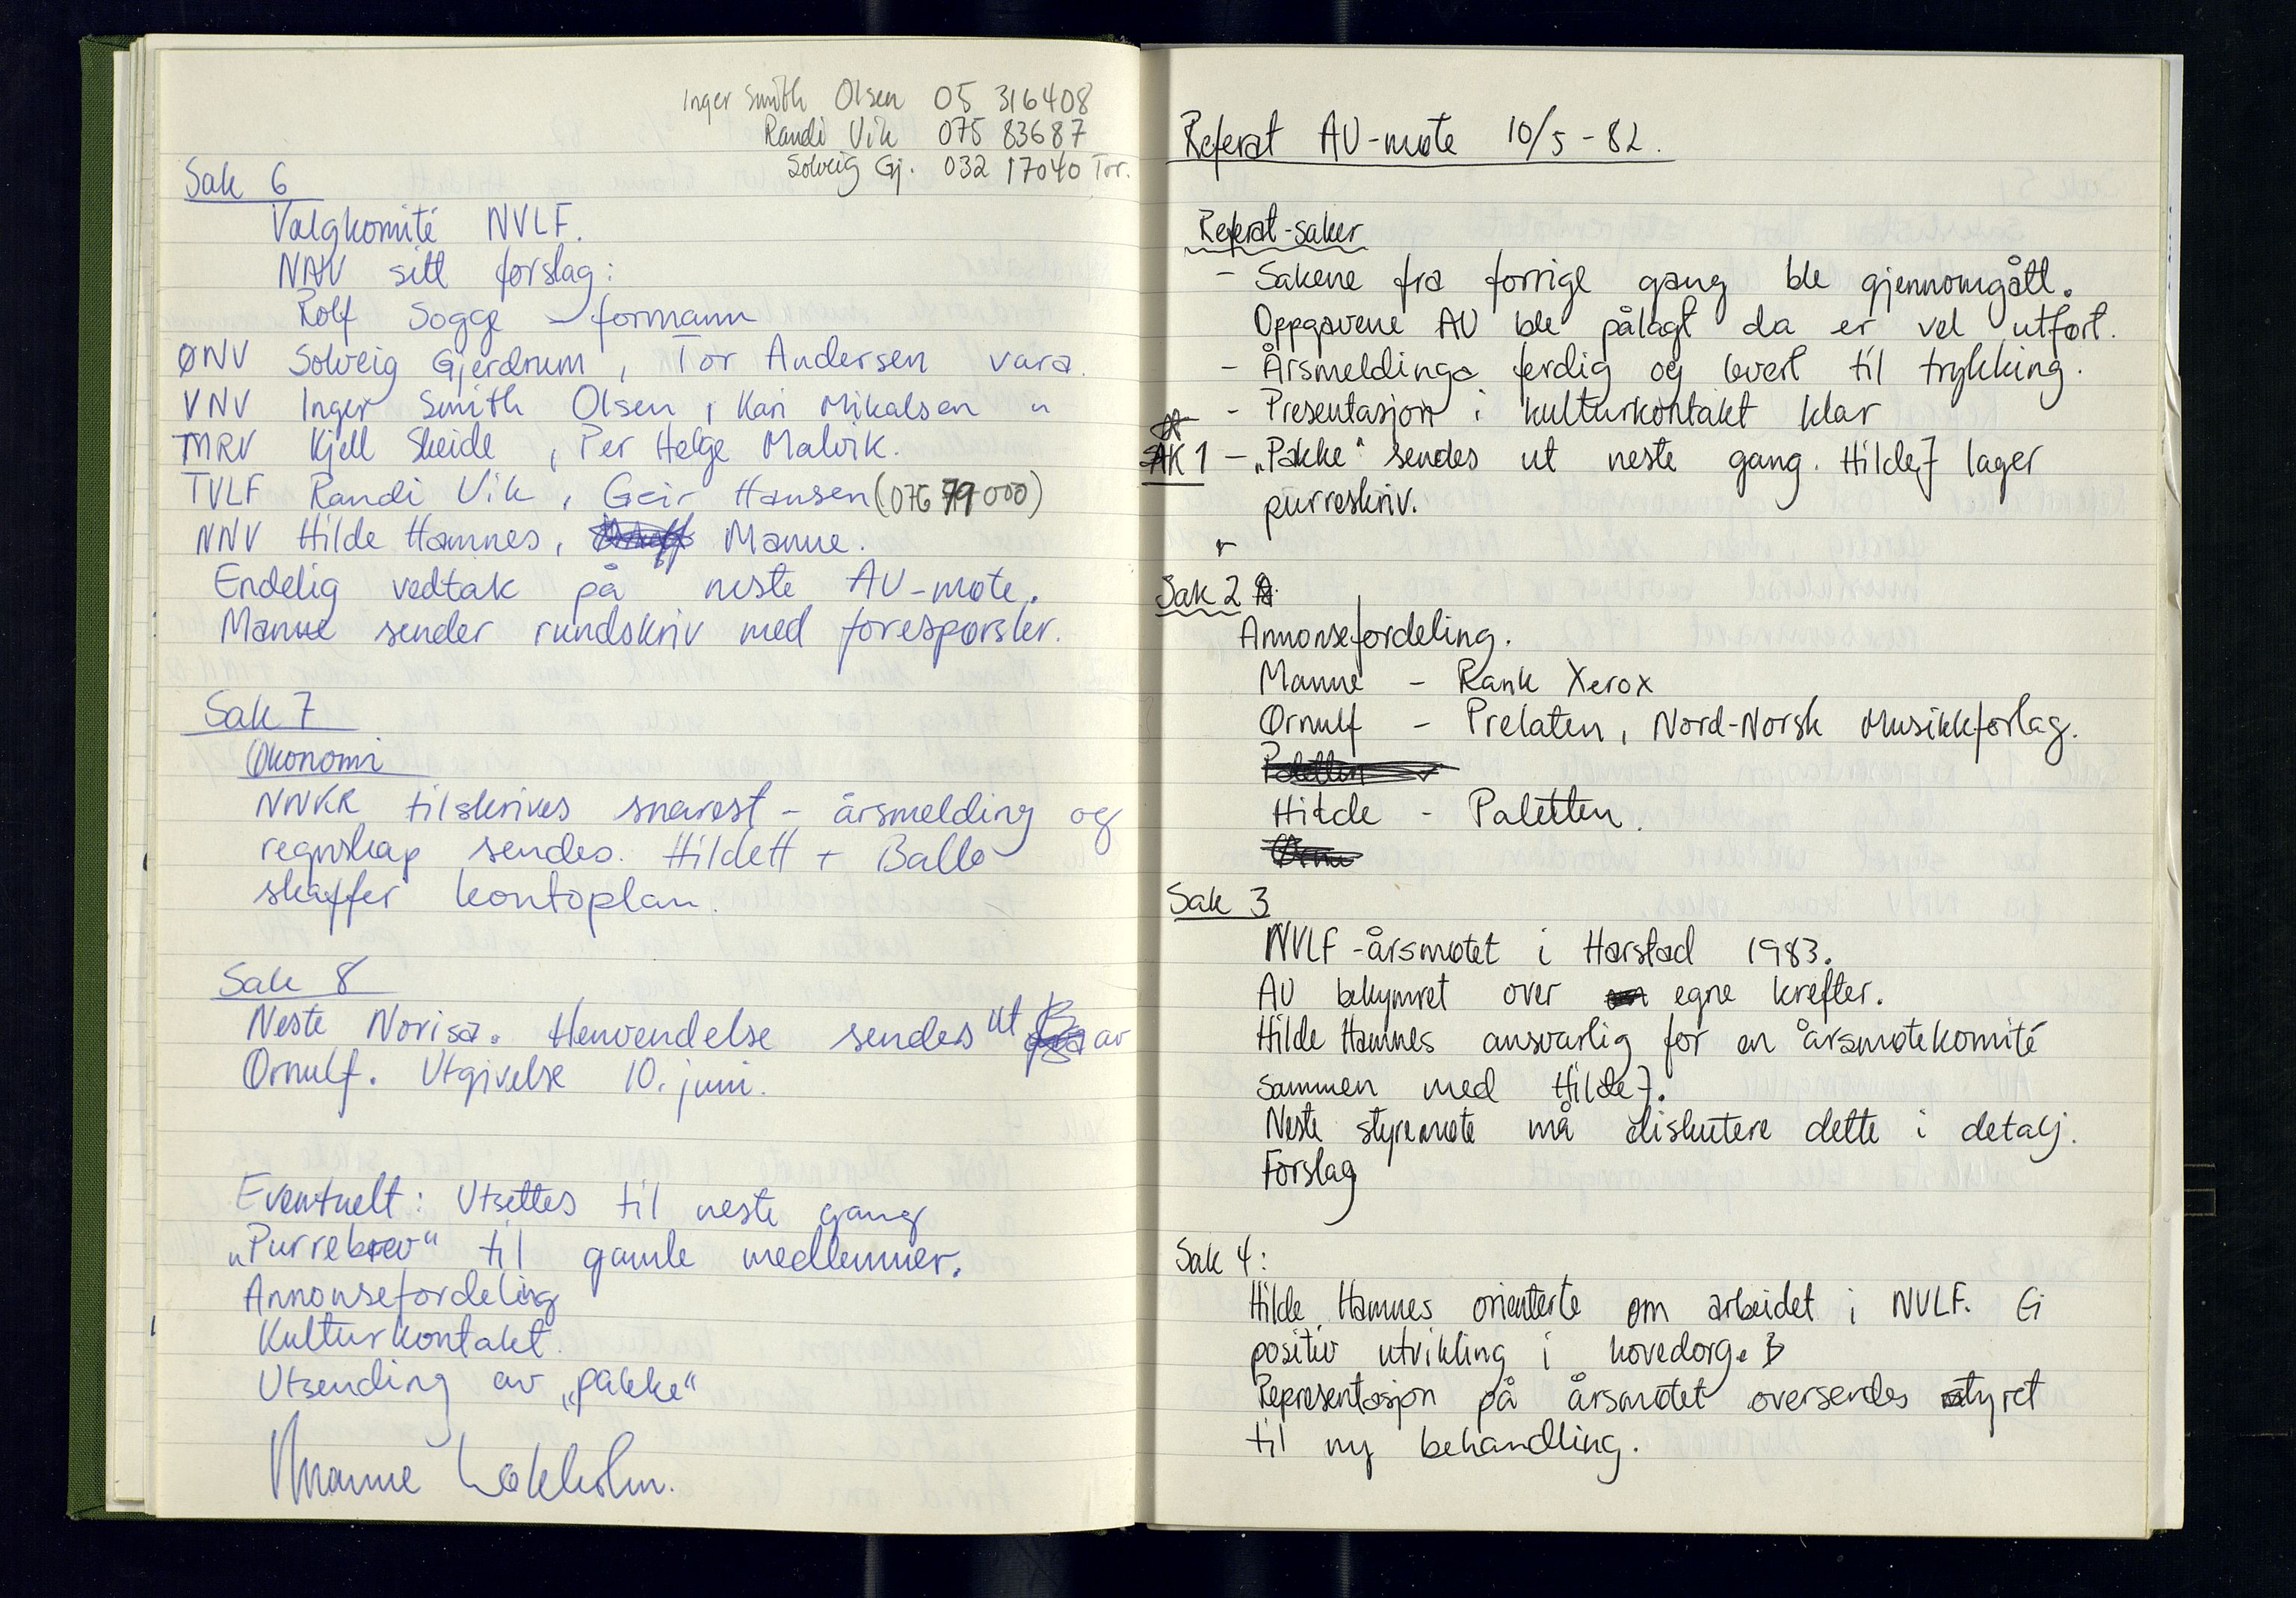 Inger Smith Olsen 05 316408
Randi Vik 075 83687
Solveig Gj. 032 17040 Tor.
Sak 6
Valgkomité NVLF.
NNV sitt forslag:
Rolf Sogge - formann
ØNV Solveig Gjerdrum, Tor Andersen vara.
VNV Inger Smith Olsen, Kari Mikalsen "
MRV Kjell Skeide, Per Helge Malvik.
TVLF Randi Vik, Geir Hansen (076 79 000)
NNV Hilde Hamnes, Manne.
Endelig vedtak på neste AU-møte.
Manne sender rundskriv med forespørsler.
Sak 7
Økonomi
NNKR tilskrives snarest - årsmelding og
regnskap sendes. HildeH + Ballo
skaffer kontoplan.
Sak 8
Neste Norisa. Henvendelse sendes ut av
Ørnulf. Utgivelse 10. juni.
Eventuelt: Utsettes til neste gang
„Purrebrev" til gamle medlemmer.
Annonsefordeling
Kulturkontakt
Utsending av „pakke"
Manne Løkholm.
Referat AU-møte 10/5-82.
Referat-saker
- Sakene fra forrige gang ble gjennomgått.
Oppgavene AU ble pålagt da er vel utført.
- Årsmeldinga ferdig og levert til trykking.
- Presentasjon i kulturkontakt klar
SAK 1 - „Pakke" sendes ut neste gang. HildeJ lager
purreskriv.
Sak 2
Annonsefordeling.
Manne - Rank Xerox
Ørnulf - Prelaten, Nord-Norsk Musikkforlag.
Paletten
Hilde - Paletten.
Ørnu
Sak 3
NVLF-årsmøtet i Harstad 1983.
AU bekymret over egne krefter.
Hilde Hamnes ansvarlig for en årsmøtekomité
sammen med HildeJ.
Neste styremøte må diskutere dette i detalj.
Forslag
Sak 4:
Hilde Hamnes orienterte om arbeidet i NVLF. Ei
positiv utvikling i hovedorg.
Representasjon på årsmøtet oversendes styret
til ny behandling.